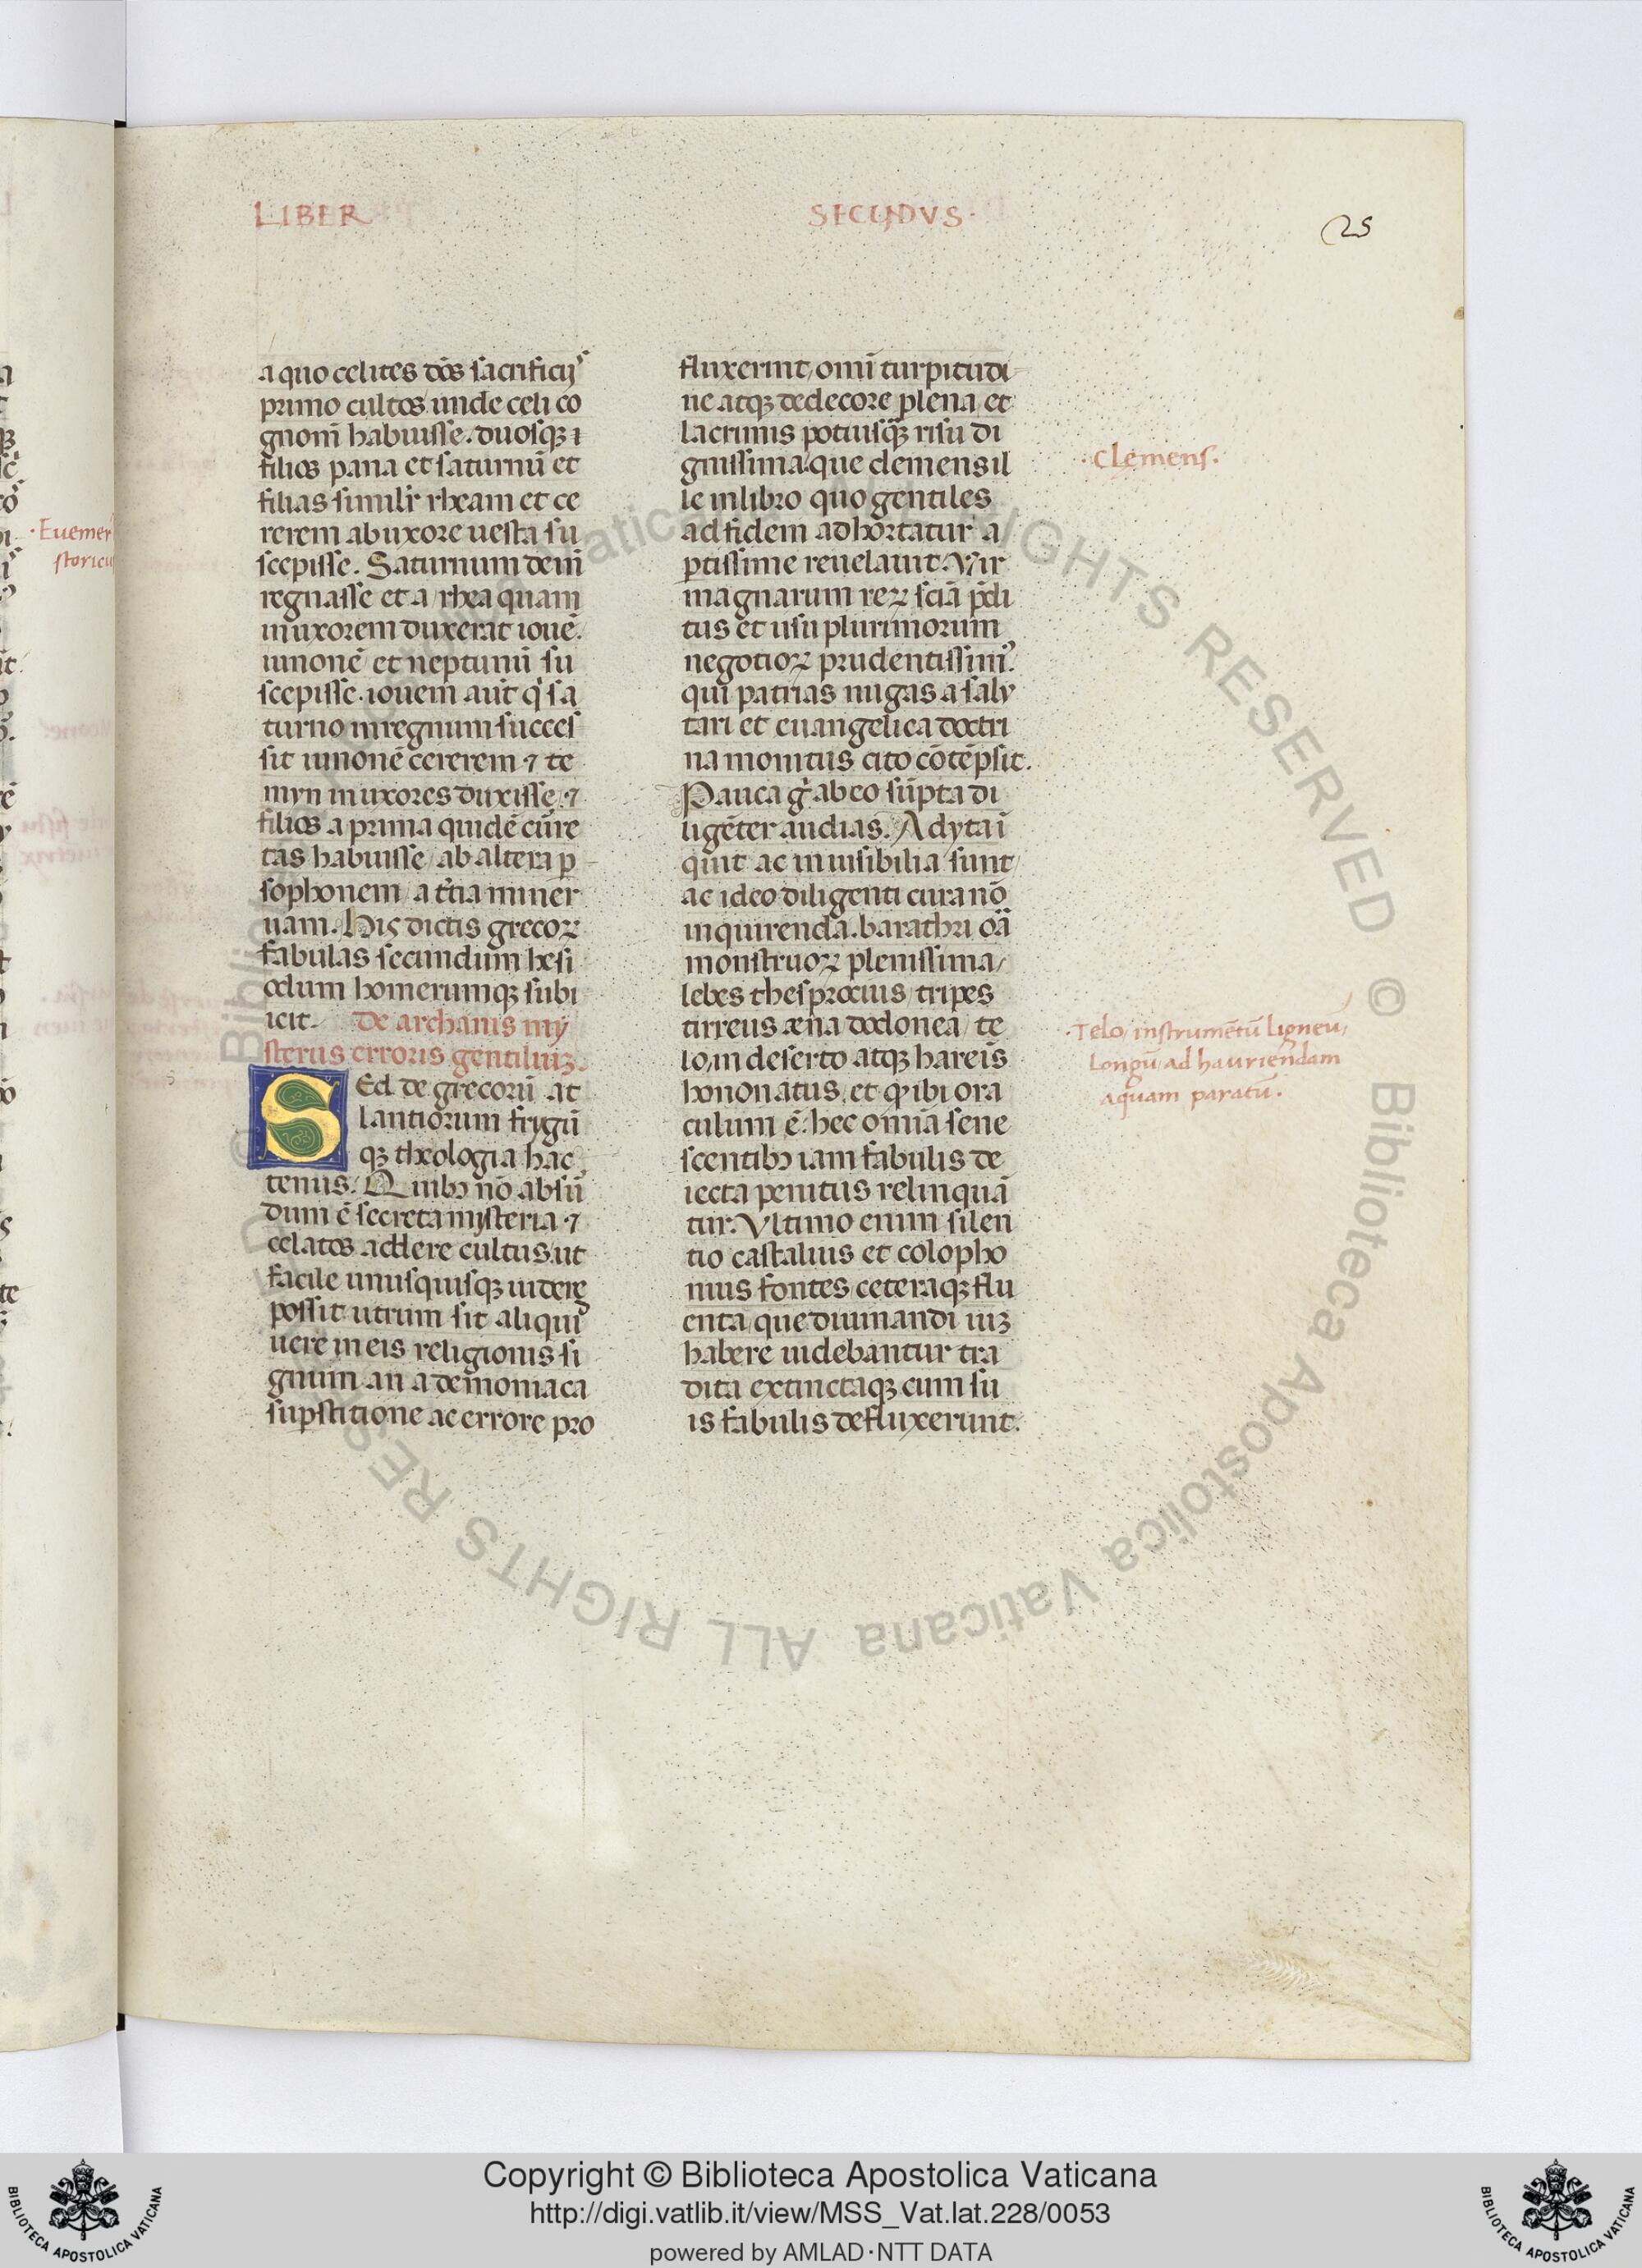 LIBER
SECUNDVS.
25
a quo celites dōs sacrificijs
primo cultos unde celi co
gnom̄ habuisse. duosqꝫ ⁊
filios pana et saturnū et
filias similr̄ rheam et ce
rerem ab uxore uesta su
scepisse. Saturnum dem̄
regnasse et a rhea quam
in uxorem duxerat iouē.
iunonē et neptunū su
scepisse. iouem aut̄ qi sa
turno in regnum succes
sit iunonē cererem ⁊ te
myn in uxores duxisse, ⁊
filios a prima quidē cūre
tas habuisse ab altera p
sophonem a t̄tia miner
uam. His dictis grecoꝝ
fabulas secundum hesi
odum homerumqꝫ subi
icit. De archanis my
sterus erroris gentiliuꝫ.
SEd de grecorū at
lantiorum frygū
qꝫ theologia hac
tenus. Quibꝫ nō absū
dum ē secreta mysteria ⁊
celatos addere cultus, ut
facile unusquisqꝫ uidere
possit utrum sit aliqui
uere in eis religionis si
gnum an a demoniaca
supstitione ac errore pro
fluxerint, omī turpitudi
ne atqꝫ dedecore plena, et
lacrimis potiusqꝫ̄ risu di
gnissima: que clemens il
le in libro quo gentiles
ad fidem adhortatur a
ptissime reuelauit. Vir
magnarum reꝝ sciā p̄di
tus et usu plurimorum
negotioꝝ prudentissim⁹.
qui patrias nugas a salu
tari et euangelica doctri
na monitus cito cōtēpsit.
Pauca g̊ ab eo sūpta di
ligēter audias. Adyta ī
quit ac inuisibilia sunt
ac ideo diligenti cura nō
inquirenda. barathri oā
monstruoꝝ plenissima,
lebes thesprocius, tripes
tirreus æna dodonea, te
lo, in deserto atqꝫ hareis
honoratus, et qꝫ ibi ora
culum ē: hec omnia sene
scentibꝫ iam fabulis de
iecta penitus relinquā
tur. Vltimo enim silen
tio castalius et colopho
nius fontes, ceteraqꝫ flu
enta, que diuinandi uiꝫ
habere uidebantur tra
dita extinctaqꝫ cum su
is fabulis defluxerunt.
.Clemens.
.Telo, instrumētū ligneu,
longū, ad hauriendam
aquam paratū.
.Euemer
storicu
Copyright © Biblioteca Apostolica Vaticana
http://digi.vatlib.it/view/MSS_Vat.lat.228/0053
powered by AMLAD·NTT DATA
BIBLIOTECA APOSTOLICA VATICANA
BIBLIOTECA APOSTOLICA VATICANA
© Biblioteca Apostolica Vaticana ALL RIGHTS RESERVED
© Biblioteca Apostolica Vaticana ALL RIGHTS RESERVED